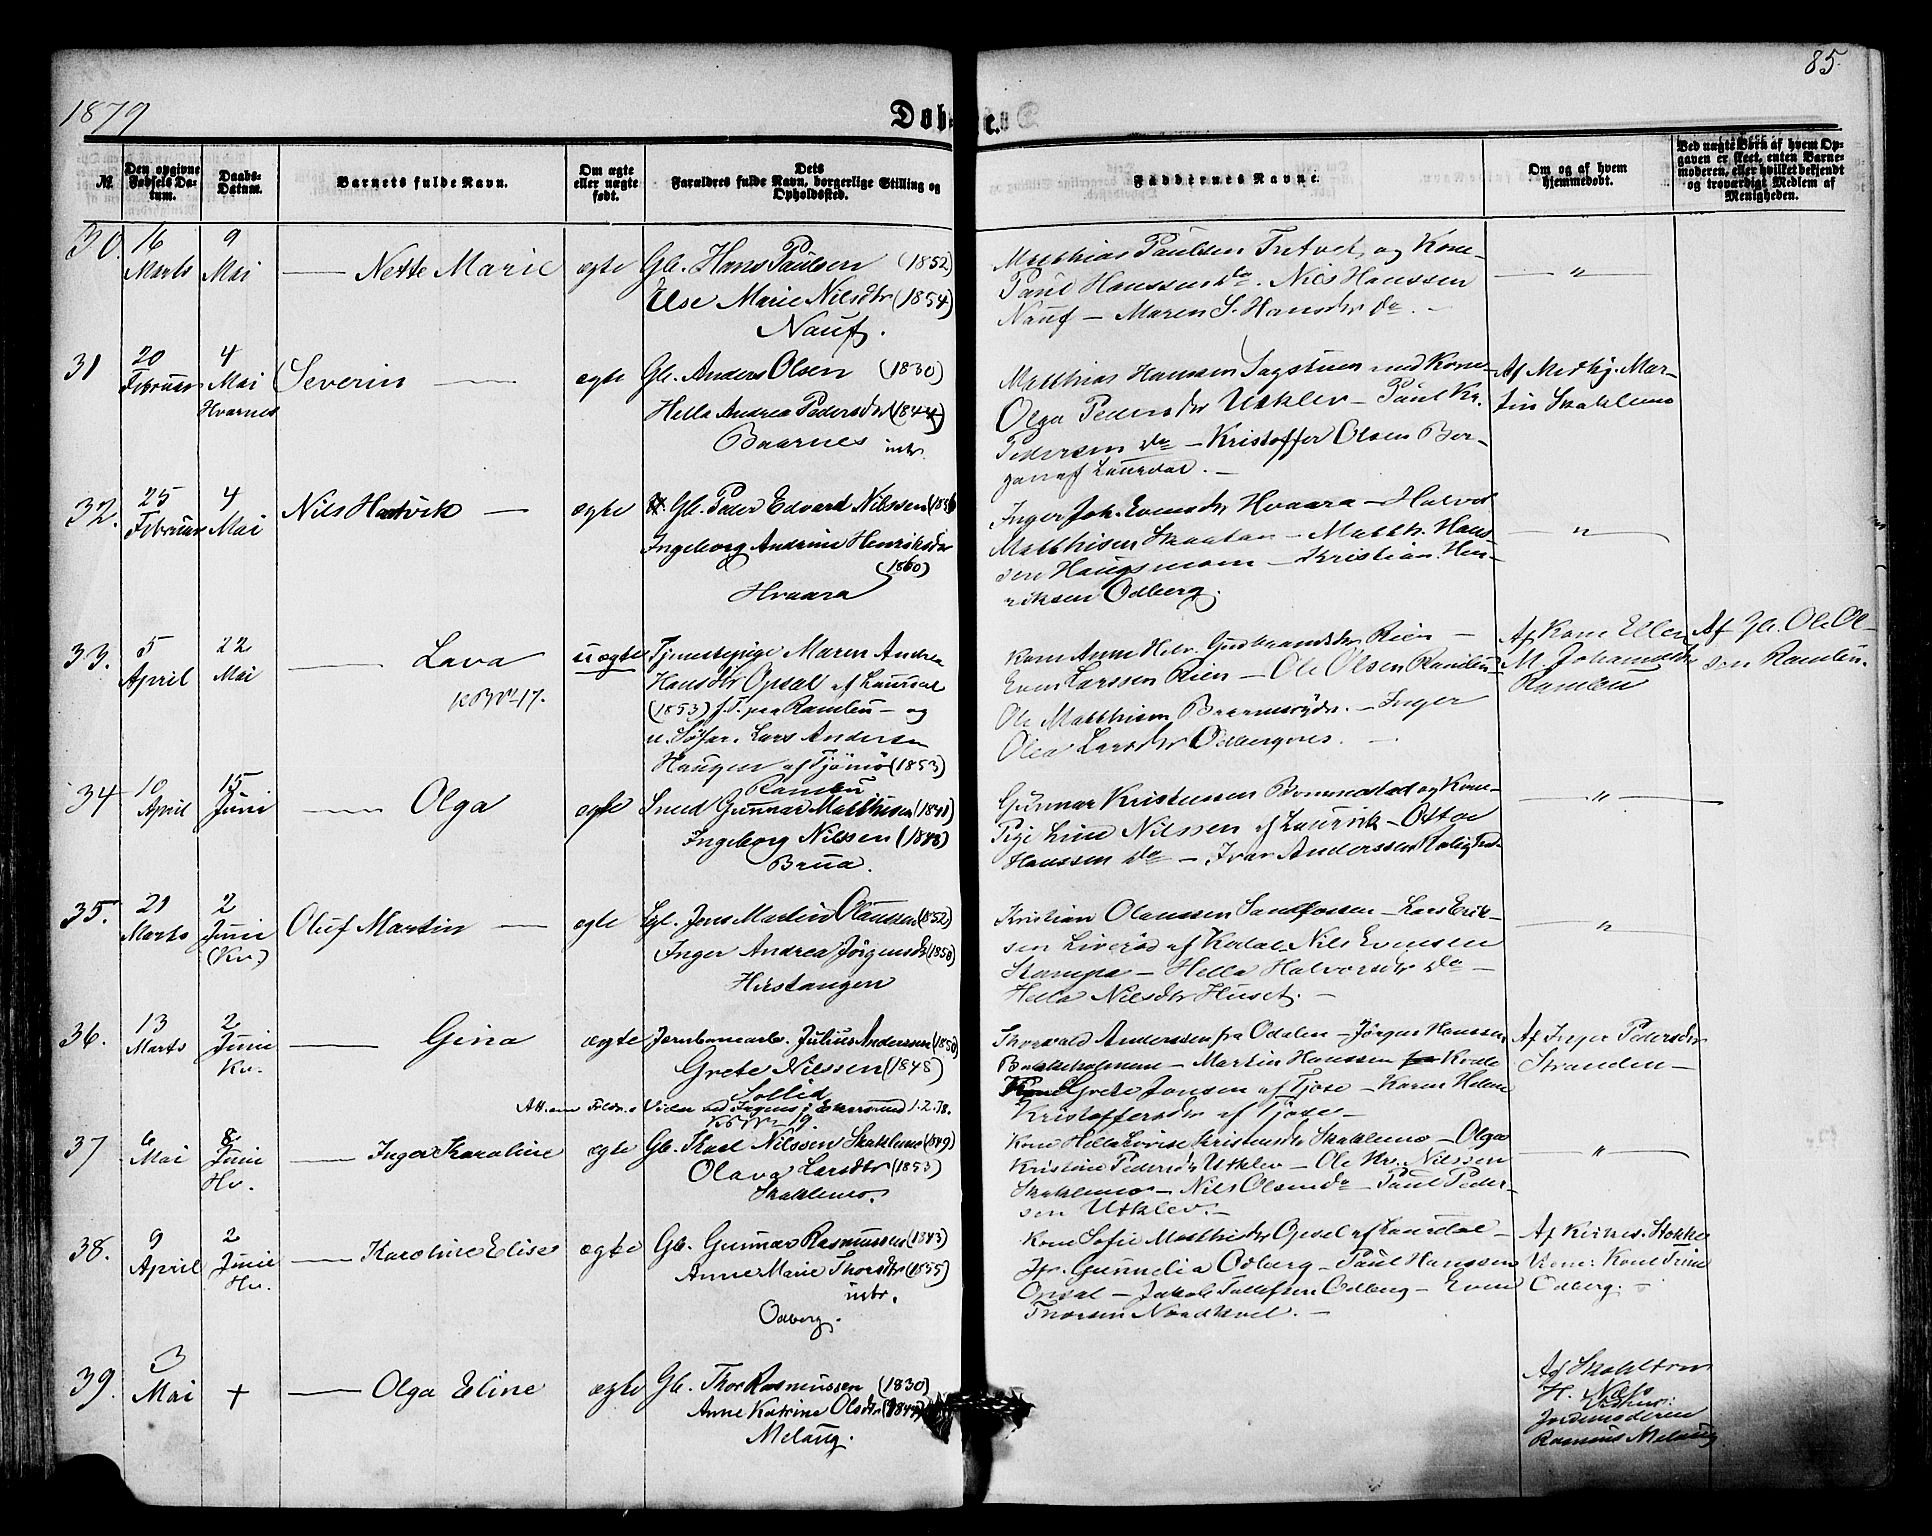 85.
1879
Døbte.
№
Den opgivne Fødsels Datum.
Daabs-Datum.
Barnets fulde Navn.
Om ægte eller uægte født.
Dets Forældres fulde Navn, borgerlige Stilling og Opholdssted.
Faddernes Navne.
Om og af hvem hjemmedøbt.
Ved uægte Børn af hvem Opgaven er skeet, enten Barnemoderen, eller hvilket bekjendt og troværdigt Medlem af Menigheden.
30. 16 Marts 9 Mai — Nette Marie ægte
Gb. Hans Paulsen (1852)
Else Marie Nilsdtr (1854)
Nauf.
Matthias Paulsen Tretvet og Kone
Paul Hanssen do. Nils Hanssen
Nauf — Maren S. Hansdtr do. —
— " —
31 20 Februar 4 Mai Hvarnes Severin — ægte
Gb. Anders Olsen (1830)
Hella Andrea Pedersdtr (1844)
Baarnes indtr.
Matthias Hanssen Sagstuen med Kone
Olga Pedersdtr Utklev — Paul Kr.
Pedersen do — Kristoffer Olsen Ber-
gan af Laurdal. —
Af Methj. Mar-
tin Skaklemo
32. 25 Februar 4 Mai Nils Hartvik — ægte
Gb. Peder Edvard Nilssen
Ingeborg Andrine Henriksdtr
(1860)
Hvaara
Inger Joh. Evensdtr Hvaara — Halvor
Matthisen Skaatan — Matth. Hans-
sen Haugsmoen — Kristian Hen-
riksen Odberg.
— " —
33. 5 April 22 Mai — Lava uægte
KB № 17.
Tjenestepige Maren Andrea
Hansdtr Opsal af Laurdal
(1853) f. T. paa Ramleu — og
u. Søfar. Lars Andersen
Haugen af Tjömö (1853)
Ramleu
Kone Anne Helv. Gudbrandsdtr Rien —
Even Larssen Rien — Ole Olsen Ramleu
Ole Matthisen — Inger
Olea Larsdtr Odbergnes. —
Af Kone Ellen
M. Johannesdtr
Ramleu
Af Gb. Ole Ol-
sen Ramleu.
34 10 April 15 Juni — Olga ægte
Smed Gunnar Matthisen (1848)
Ingeborg Nilssen (1848)
Brua.
Gunnar Kristensen Bommestad og Kone
Pige Line Nilssen af Laurvik — Ostar
Hanssen do — Ivar Anderssen
— " —
35. 29 Marts 2 Juni (Kv.) Oluf Martin — ægte
Lgl. Jens Martin Olaussen (1852)
Inger Andrea Jörgensdtr (1850)
Histangen
Kristian Olaussen Sandfossen — Lars Erik-
sen Liveröd af Kodal — Nils Evensen
Stampa — Hella Halvorsdtr do —
Hella Nilsdtr Huset. —
"
36. 13 Marts 2 Juni Kv. — Gina ægte
Jernbanearb. Julius Anderssen (1850)
Grete Nilssen (1848)
Sollid
1.2.78.
Thorvald Anderssen fra Odalen — Jörgen Hanssen
Bakkeholmene — Martin Hanssen Kvelle
Grete Jansen af Tjose — Karen Helene
Kristoffersdtr af Tjöse —
Af Inger Pedersdtr
Stranden —
37 6 Mai 8 Juni Hv. — Inger Karoline ægte
Gb. Karl Nilssen Skaklemo (1849)
Olava Larsdtr (1853)
Skaklemo.
Kone Hella Lovise Kristensdtr Skaklemo — Olga
Kristine Pedersdtr Utklev — Ole Kr. Nilssen
Skaklemo — Nils Olsen do — Paul Peder-
sen Utklev. —
— " —
38. 9 April 2 Juni Hv. — Karoline Elise ægte
Gb. Gunnar Rasmussen (1843)
Anne Marie Thorsdtr (1855)
indtr.
Odberg.
Kone Sofie Matthisdtr Opsal af Laurdal —
Jfr. Gunnelia Odberg — Paul Hanssen
Opsal — Jakob Tollefsen Odberg — Even
Thorsen Nordkvel. —
Af Kirkes. Stokke
Vidne: Kone Trine
Odberg. —
39. 3 Mai + — Olga Eline ægte
Gb. Thor Rasmussen (1830)
Anne Katrine Olsdtr
Melaug.
Af
H. Næss
Vidner:
Jordemoderen
Rasmus Melaug